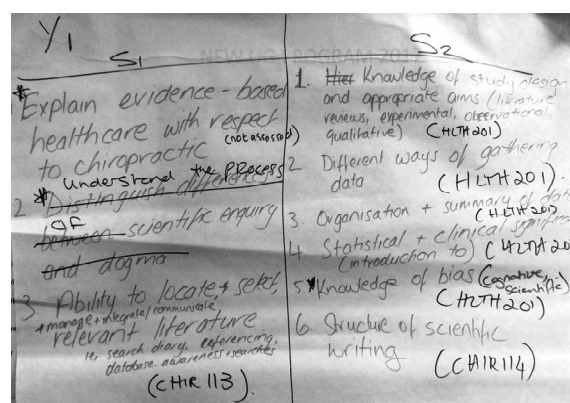 Y1
S1
* Explain evidence-based
healthcare with respect
to chiropractic (not assessed)
Understand the process
2 * Distinguish difference
of
between scientific enquiry
and dogma
3. Ability to locate + select,
+ manage + integrate/communicate
relevant literature
ie, search diary, referencing,
database awareness + searches
(CHIR 113).
S2
1. Hier Knowledge of study design
and appropriate aims (literature
reviews, experimental, observational,
qualitative) (HLTH201)
2. Different ways of gathering
data (HLTH 201).
3. Organisation + summary of data
(HLTH 201)
4. Statistical + clinical
(introduction to) (HLTH 20
5. * Knowledge of bias (cognative,
scientific)
(HLTH 201)
6. Structure of scientific
writing.
(CHIR114)